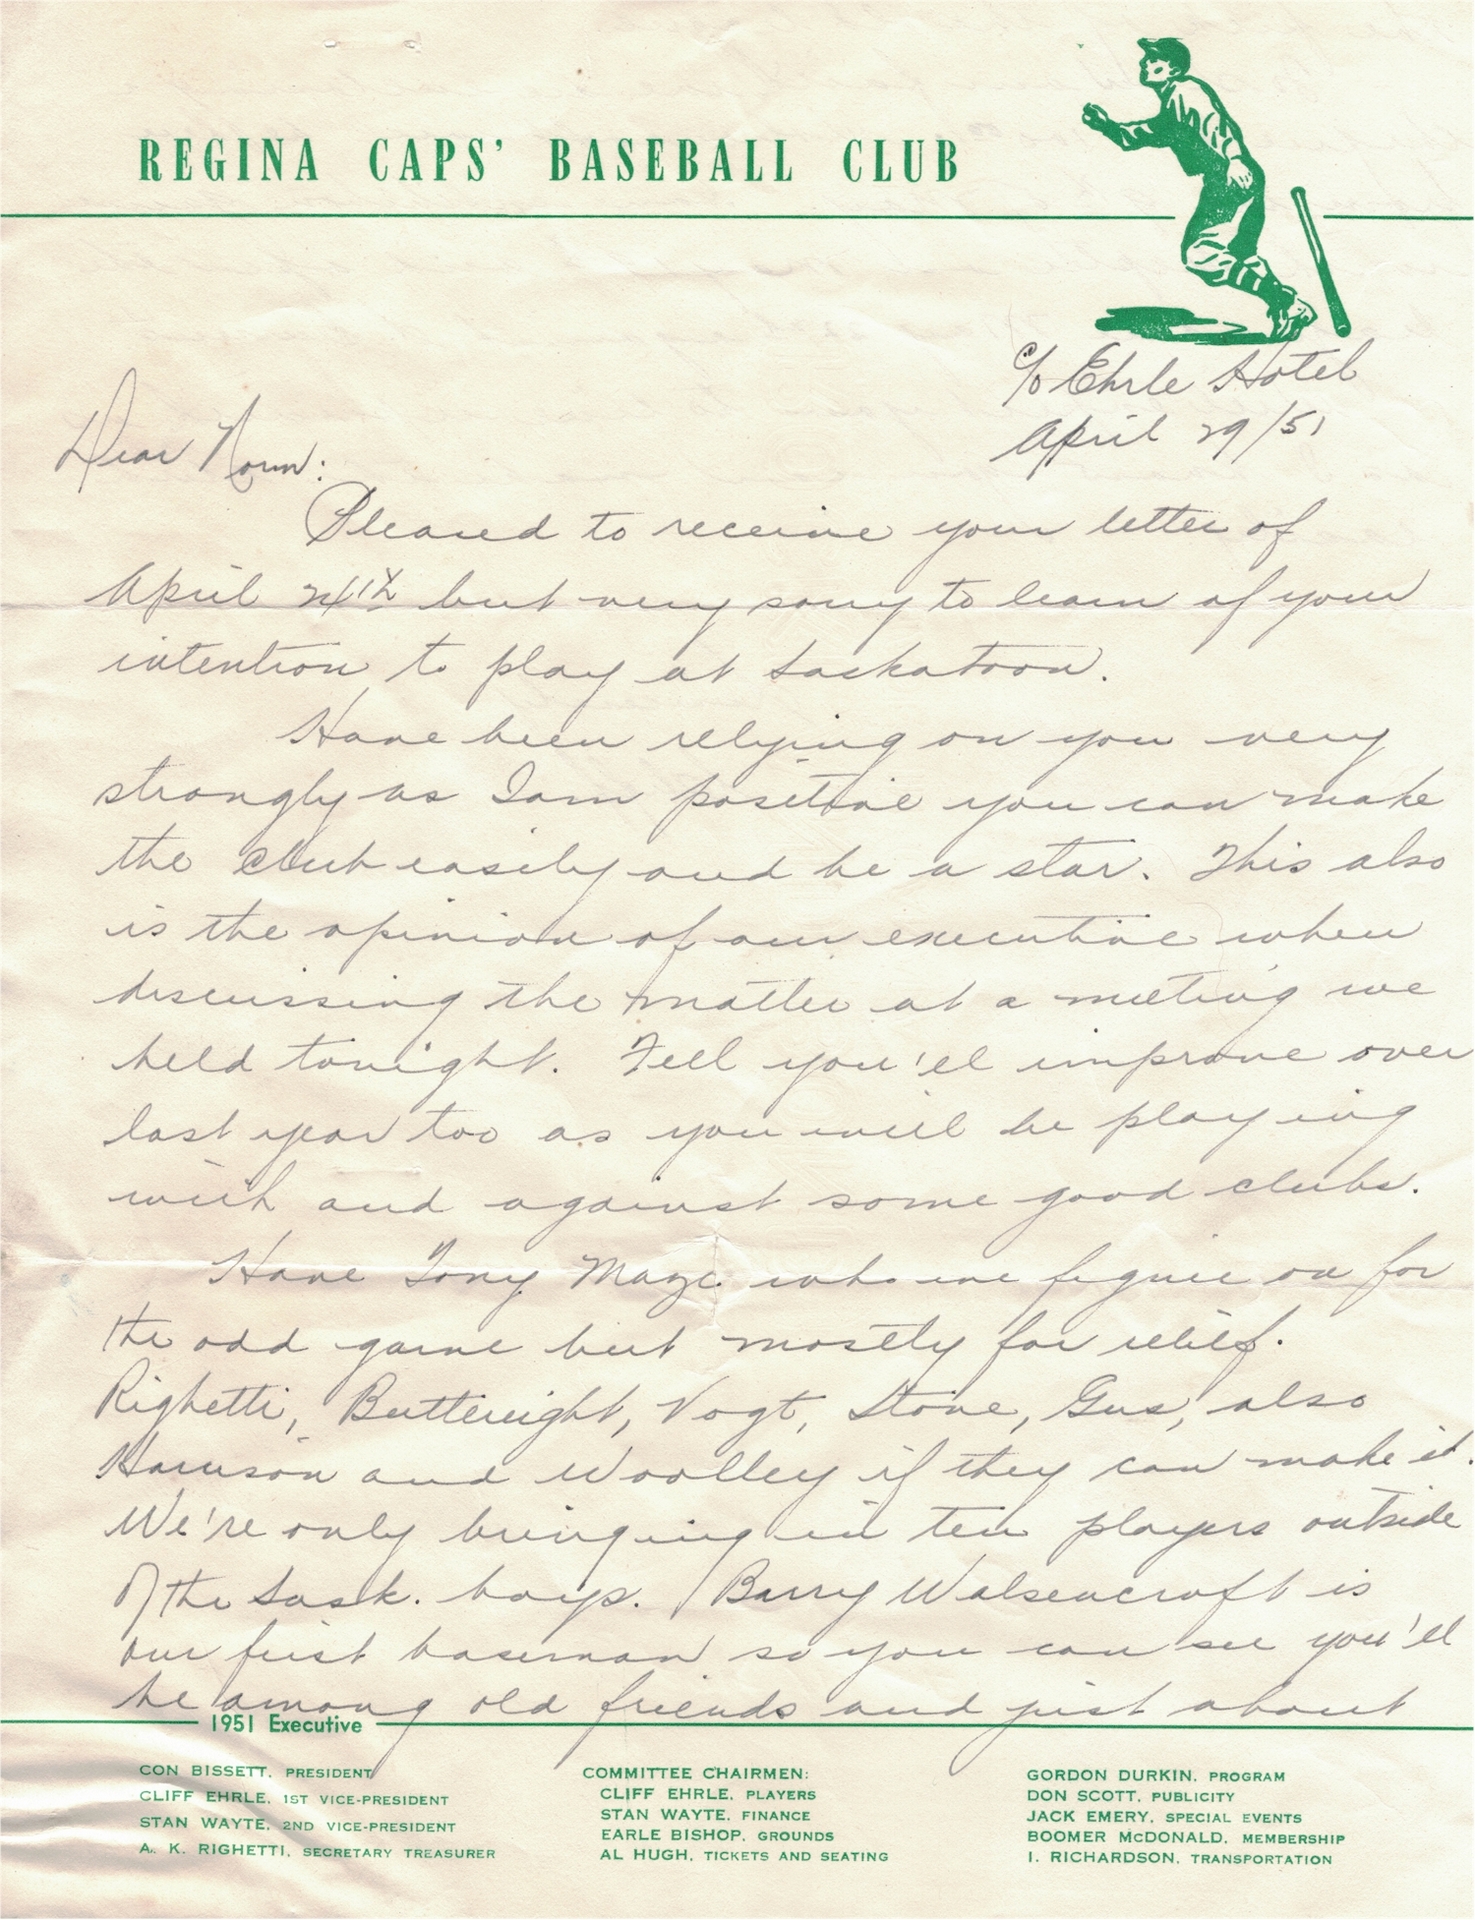 REGINA CAPS' BASEBALL CLUB
c/o Ehrle Hotel
April 29/51
Dear Norm:
Pleased to receive your letter of
April 24th but very sorry to learn of your
intention to play at Saskatoon.
Have been relying on you very
strongly as I am positive you can make
the club easily and be a star. This also
is the opinion of our executive when
discussing the matter at a meeting we
held tonight. Feel you'el improve over
last year too as you will be playing
with and against some good clubs.
Have Tony Maze who we figure on for
the odd game but mostly for relief.
Righetti, Butteright, Vogt, Stone, Gus, also
Harrison and Woolley if they can make it.
We're only bringing in ten players outside
of the Sask. boys. Barry Walsencroft is
our first baseman so you can see you'll
be among old friends and just about
1951 Executive
CON BISSETT, PRESIDENT
CLIFF EHRLE, 1ST VICE-PRESIDENT
STAN WAYTE, 2ND VICE-PRESIDENT
A. K. RIGHETTI, SECRETARY TREASURER
COMMITTEE CHAIRMEN:
CLIFF EHRLE, PLAYERS
STAN WAYTE, FINANCE
EARLE BISHOP, GROUNDS
AL HUGH, TICKETS AND SEATING
GORDON DURKIN, PROGRAM
DON SCOTT, PUBLICITY
JACK EMERY, SPECIAL EVENTS
BOOMER McDONALD, MEMBERSHIP
I. RICHARDSON, TRANSPORTATION